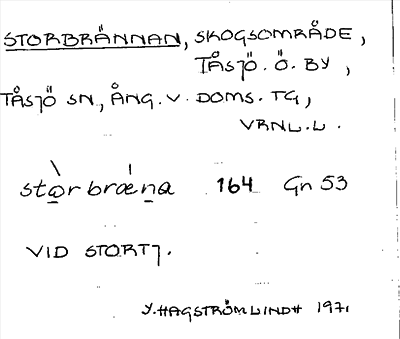 STORBRÄNNAN, SKOGSOMRÅDE,
TÅSJÖ. Ö. BY,
TÅSJÖ SN., ÅNG. V. DOMS. TG,
VRNL. L.
stò̱rbrǽṉa 164 Gn 53
VID STORTJ.
Y. HAGSTRÖM LINDH 1971